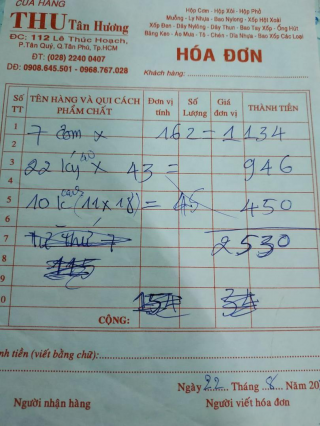 CỬA HÀNG
THU Tân Hương
ĐC: 112 Lê Thúc Hoạch,
P.Tân Quý, Q.Tân Phú, Tp.HCM
ĐT: (028) 2240 0407
DĐ: 0908.645.501 - 0968.767.028
Hộp Cơm - Hộp Xôi - Hộp Phở
Muỗng - Ly Nhựa - Bao Nylong - Xốp Hột Xoài
Xốp Đen - Dây Nylong - Dây Thun - Bao Tay Xốp - Ống Hút
Băng Keo - Áo Mưa - Tô - Chén - Dĩa Nhựa - Bao Xốp Các Loại
HÓA ĐƠN
Khách hàng:
Số TT TÊN HÀNG VÀ QUI CÁCH PHẨM CHẤT Đơn vị tính Số Lượng Giá đơn vị THÀNH TIỀN
1 7 x 162 = 1134
2
3 22 ký x 43 = 946
4
5 10 k (11 x 18) = 45 450
6
7 2530
8
9
0
CỘNG:
ành tiền (viết bằng chữ):
Ngày 22 Tháng 8 Năm 20
Người nhận hàng Người viết hóa đơn